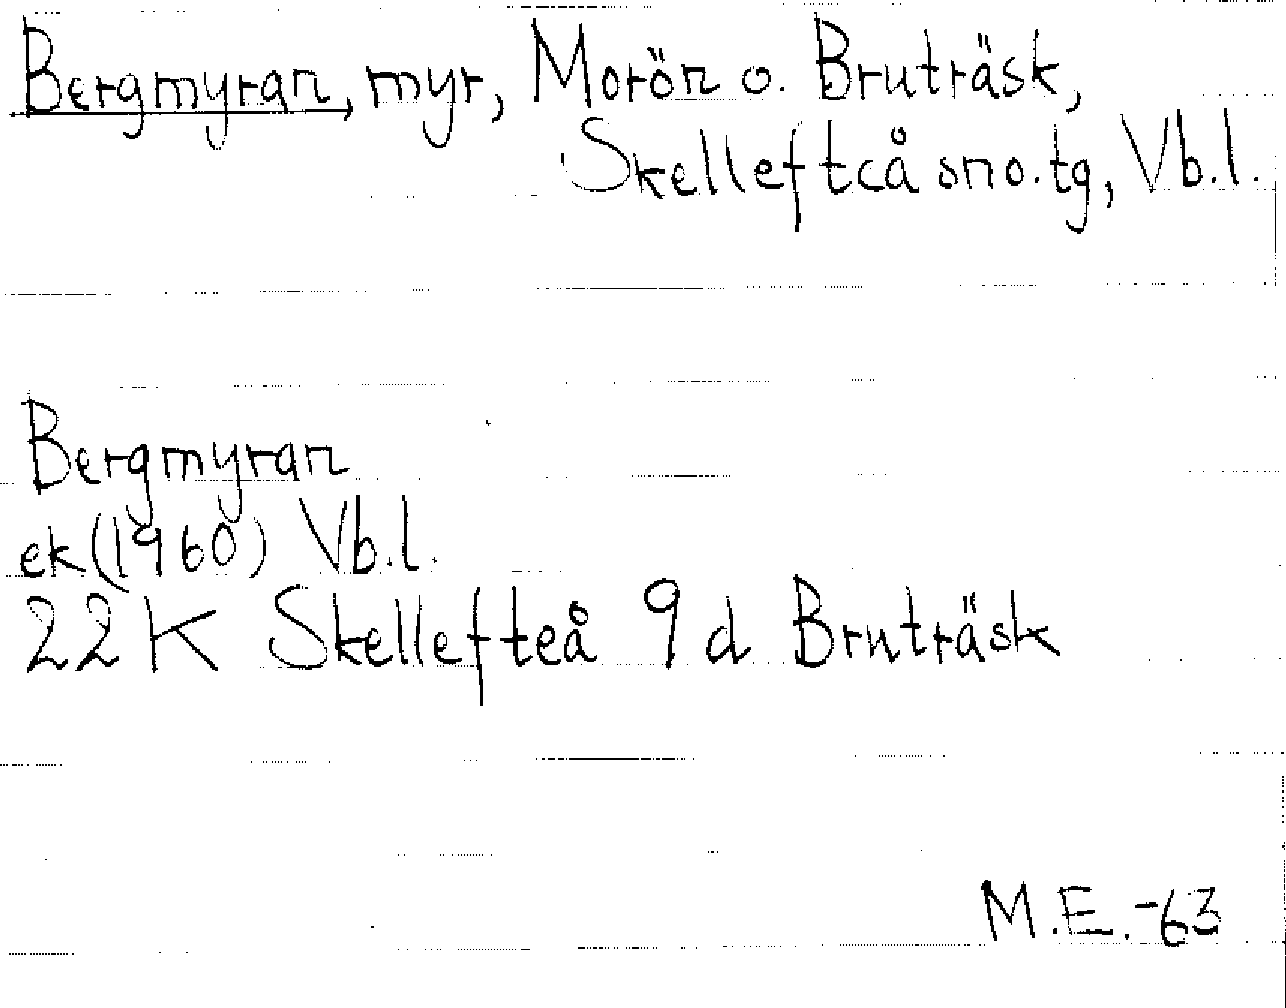 Bergmyran, myr, Morön o. Bruträsk,
Skellefteå sn o. tg, Vb. l.
Bergmyran
ek (1960) Vb. l.
22 K Skellefteå 9 d Bruträsk
M.E. -63